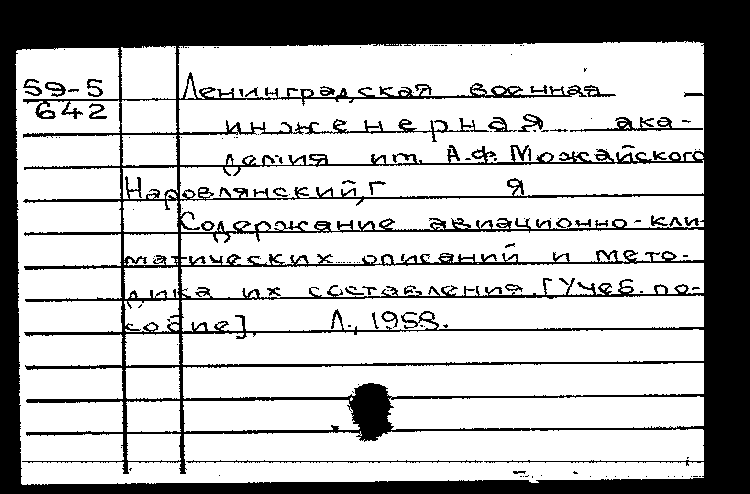 59-5
642
Ленинградская военная
инженерная ака-
демия им. А.Ф. Можайского
Наровлянский, Г Я
Содержание авиационно-кли-
матических описаний и мето-
дика их составления. [Учеб. по-
собие]. Л., 1958.